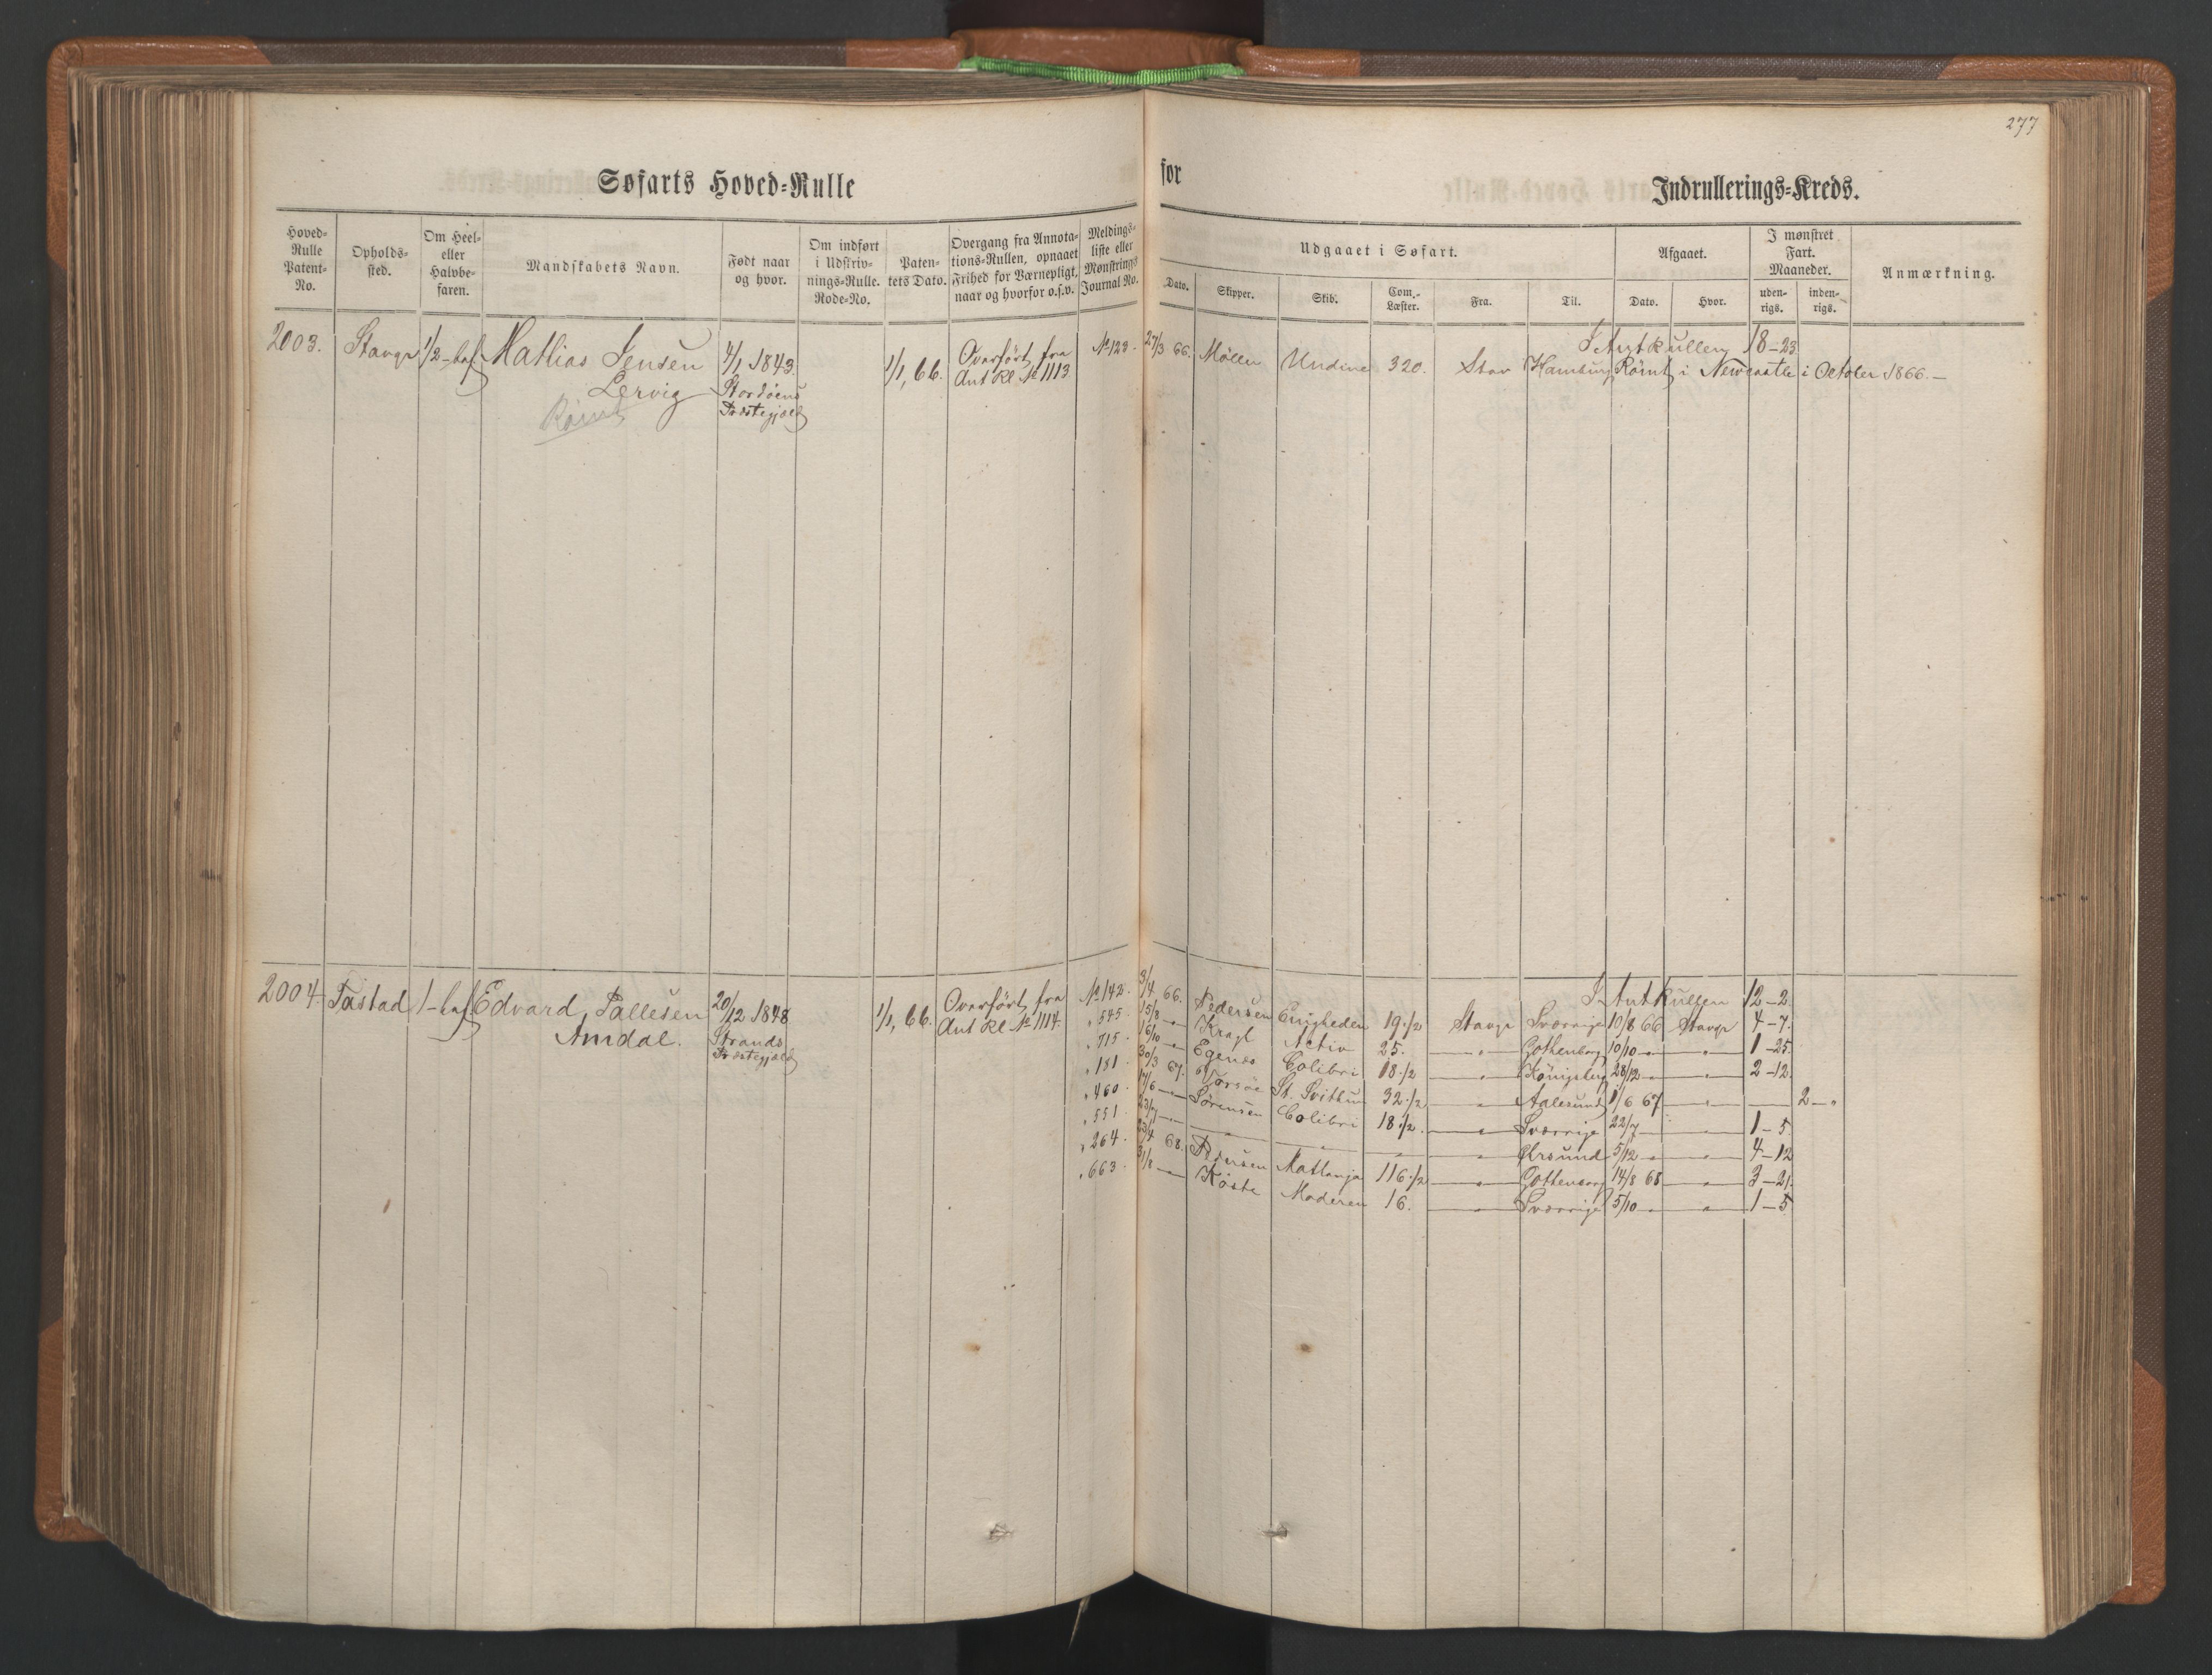 277
Søfarts Hoved-Rulle for Indrullerings-Kreds.
Hoved-Rulle Patent-No.
Opholds-sted.
Om Heel- eller Halvbe-faren.
Mandskabets Navn.
Født naar og hvor.
Om indført i Udskriv-nings-Rulle. Rode-No.
Paten-tets Dato.
Overgang fra Annota-tions-Rullen, opnaaet Frihed for Værnepligt, naar og hvorfor o.s.v.
Meldings-liste eller Mønstrings Journal No.
Udgaaet i Søfart.
Dato.
Skipper.
Skib.
Com.-Læster.
Fra.
Til.
Afgaaet.
Dato.
Hvor.
I mønstret Fart. Maaneder.
uden-rigs.
inden-rigs.
Anmærkning.
I Antkullen 18-23
2003. Stavgr 1/2-baf Mathias Jensen 4/1 1843. 1/1, 66. Overført fra No 123. 27/3 66. Möller Undine 320. Stav Hamburg Rømt i Newcastle i October 1866.-
Lervig Stordöens Ant Rl No 1113
Rømt Præstegjæld
I Antkullen 12-2
2004. Tastad 1-baf Edvard Pallesen 20/12 1848 1/1, 66. Overført fra No 142. 3/4 66. Pedersen Enigheden 19 1/2 Stavgr Sværrige 10/8 66 Stavgr 4-7.
Amdal. Strands Ant Rl No 1114. " 545. 15/8 -"- Kragt Activ 25. -"- Gothenborg 10/10 -"- -"- 1-25.
Præstegjæld " 715. 16/10 -"- Egenæs Colibri 18 1/2 -"- Königsberg 28/12 -"- -"- 2-12.
" 181. 30/3 67. St. Svithun 32 1/2 -"- Aalesund 1/6 67 -"- - 2-"
" 460. 17/6 -"- Sørensen Colibri 18 1/2. -"- Sværrige 22/7 -"- -"- 1-5
" 551. 23/7 -"- -"- -"- -"- -"- Øresund 5/12 -"- -"- 4-12
" 264. 23/4 68. Pedersen Mattanja 116 1/2 -"- Gothenborg 14/8 68 -"- 3-21.
" 663. 31/8 -"- Köste Moderen 16. -"- Sværrige 5/10 -"- -"- 1-5